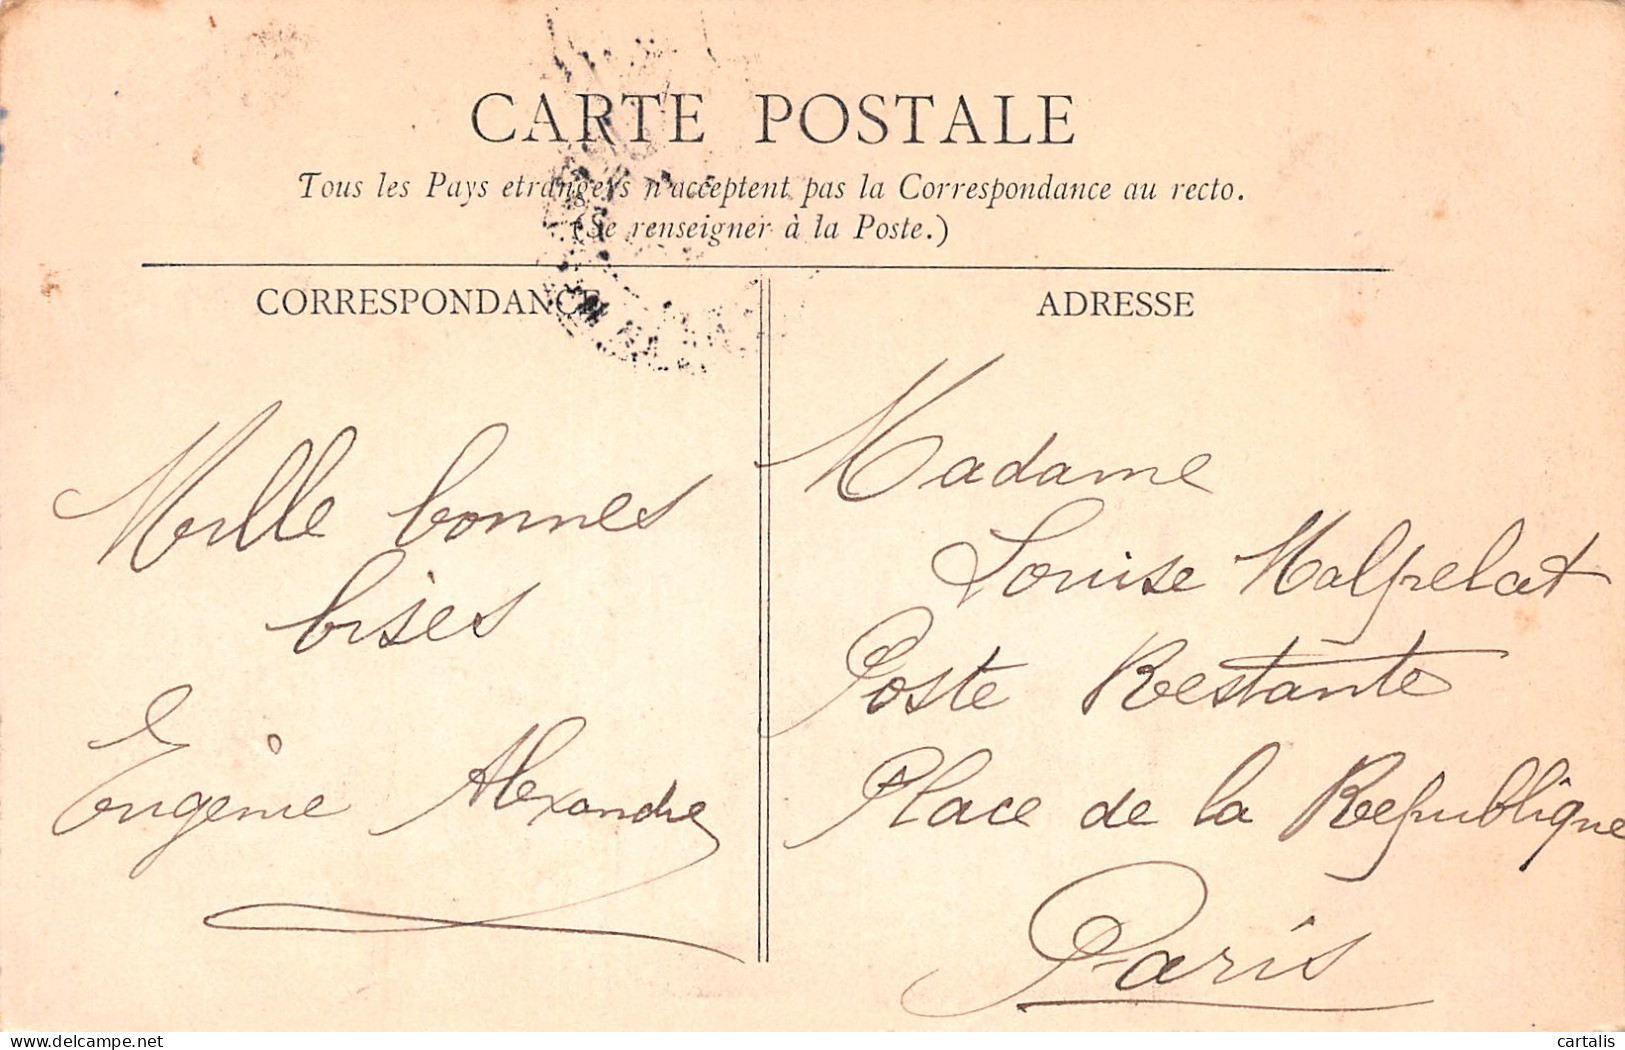 CARTE POSTALE
Tous les Pays etrangers n'acceptent pas la Correspondance au recto.
(Se renseigner à la Poste.)
CORRESPONDANCE
ADRESSE
Mille bonnes
bises
Eugènie Alexandre
Madame
Louise Malprelat
Poste Restante
Place de la Republique
Paris
www.delcampe.net
cartalis